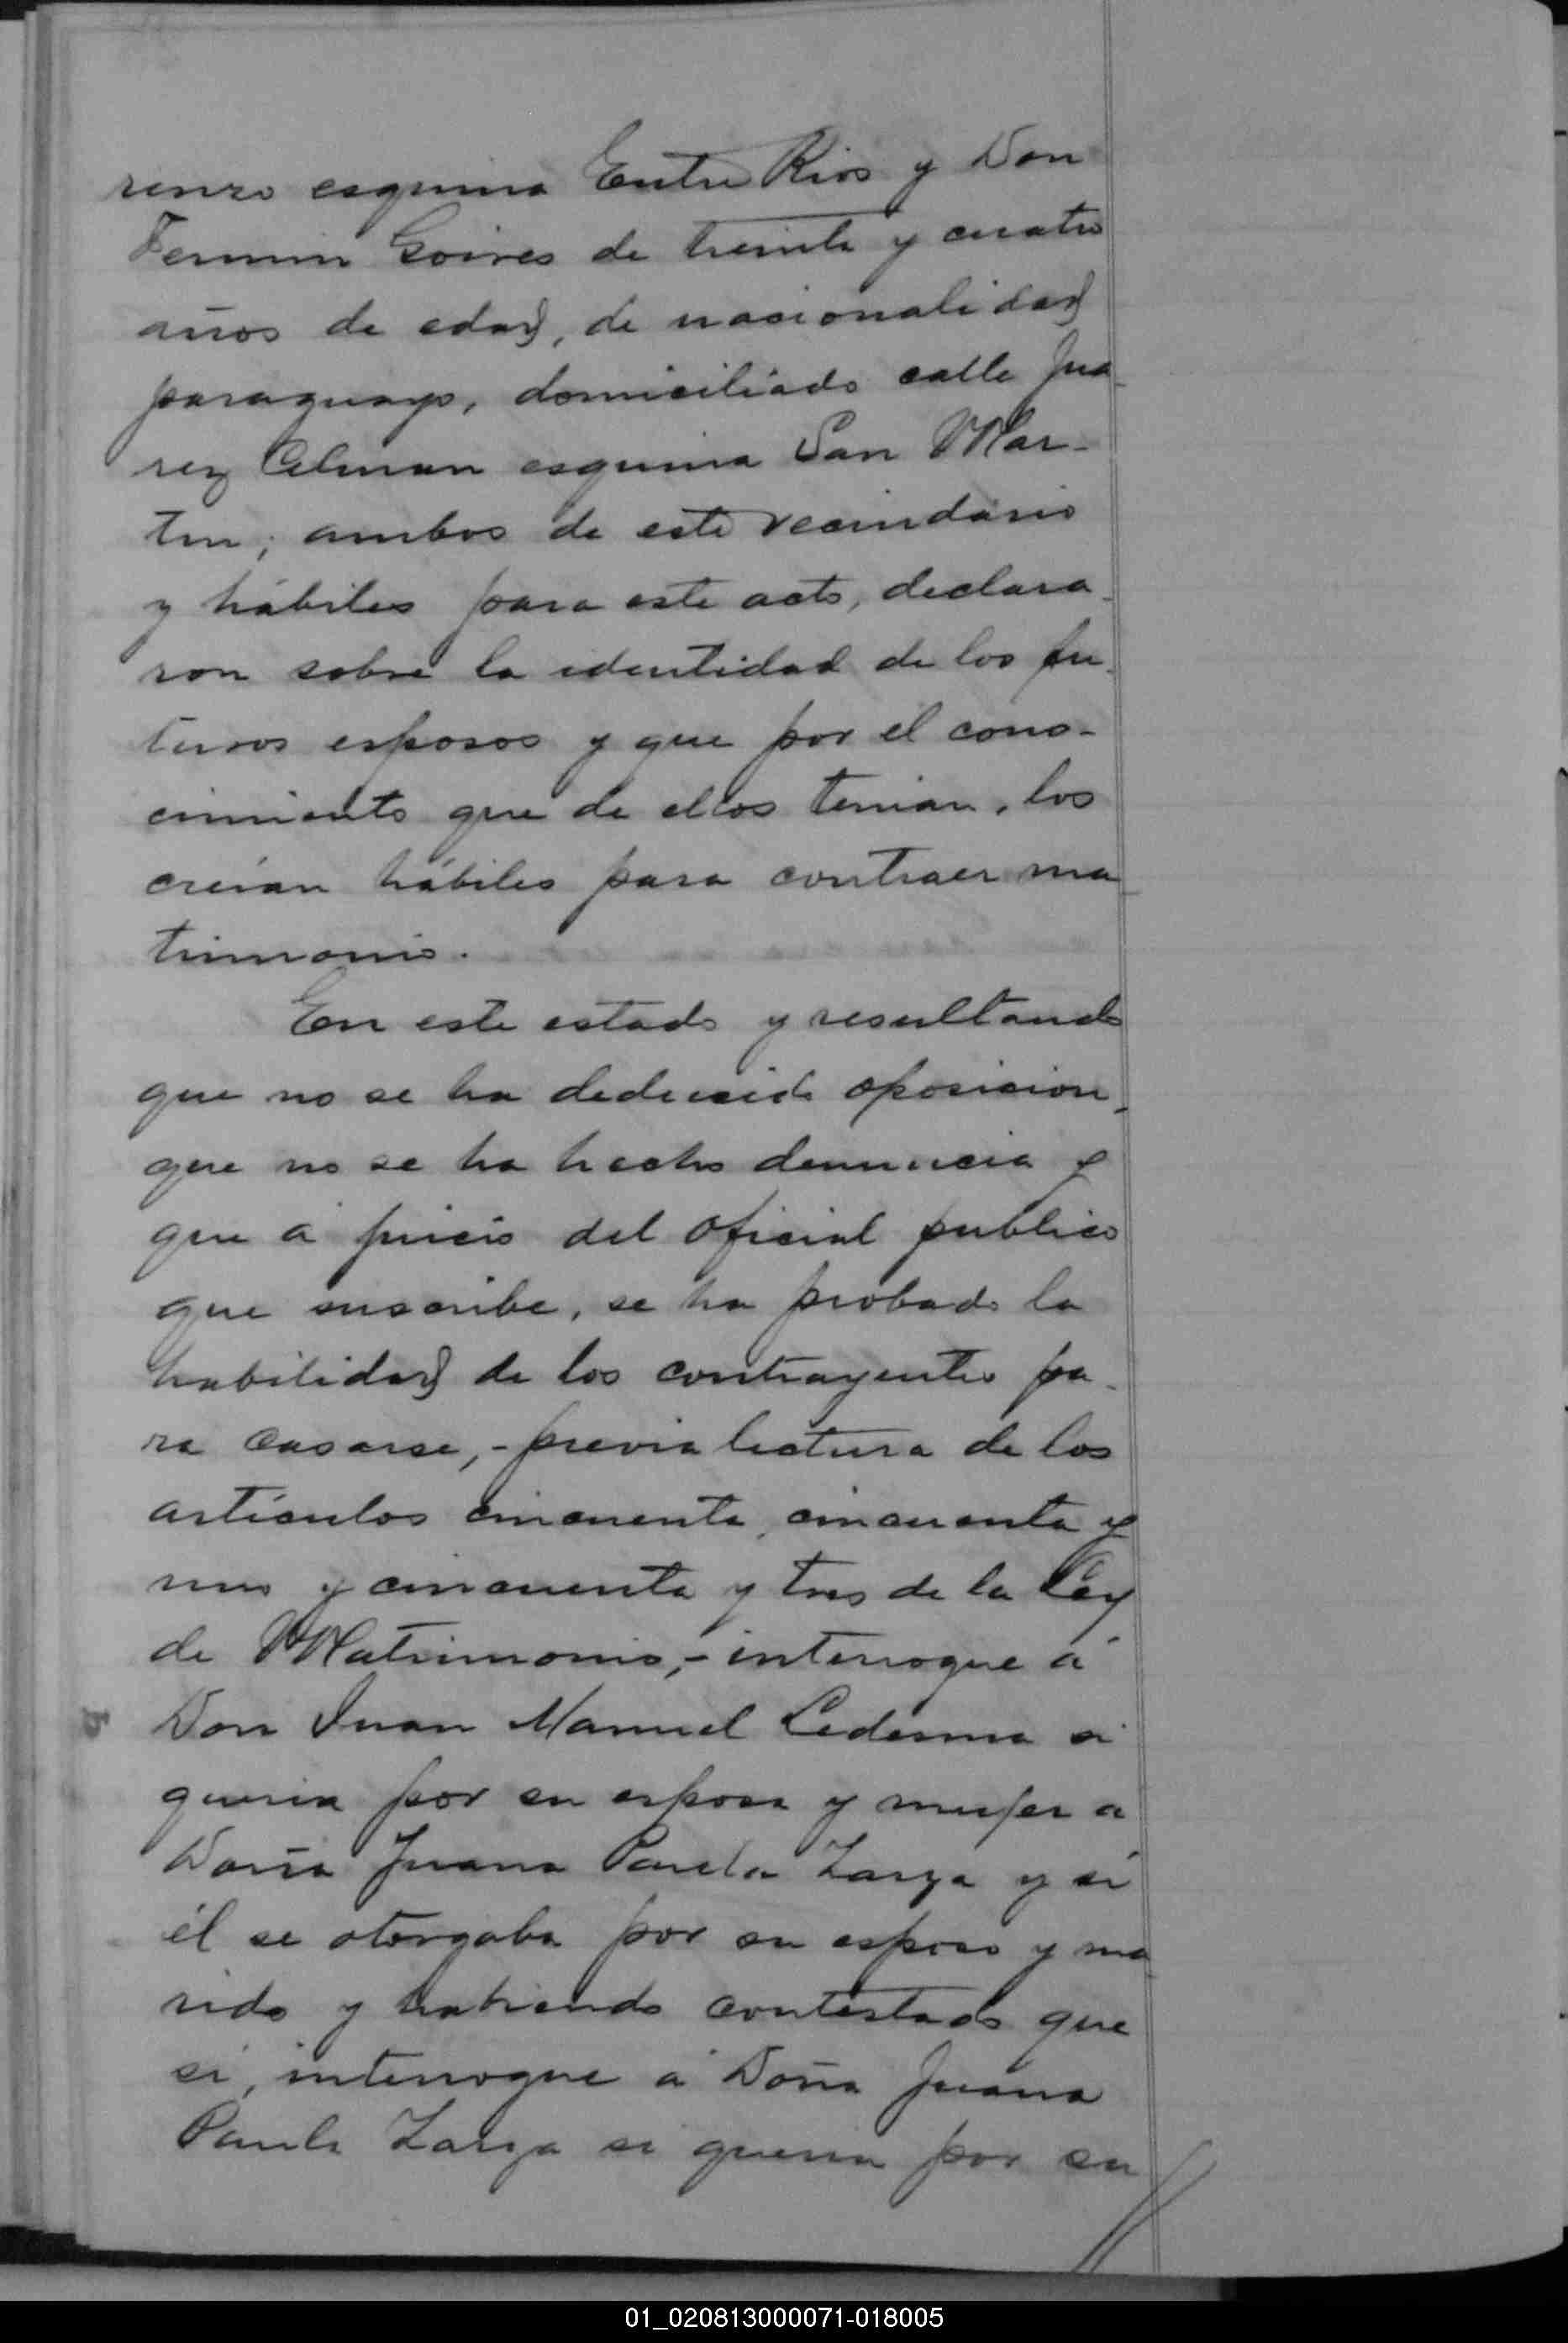 renzo esquina Entre Rios y Don
Fermin Goires de treinta y cuatro
años de edad, de nacionalidad
paraguayo, domiciliado calle Jua-
rez Celman esquina San Mar-
tin; ambos de este vecindario
y hábiles para este acto, declara-
ron sobre la identidad de los fu-
turos esposos y que por el cono-
cimiento que de ellos tenian, los
creían hábiles para contraer ma-
trimonio.
En este estado y resultando
que no se ha deducido oposicion,
que no se ha hecho denuncia y
que á juicio del oficial publico
que suscribe, se ha probado la
habilidad de los contrayentes pa-
ra casarse,- previa lectura de los
artículos cincuenta, cincuenta y
uno y cincuenta y tres de la Ley
de Matrimonio,- interrogue á
Don Juan Manuel Ledesma si
queria por su esposa y mujer a
Doña Juana Paula Zarza y si
él se otorgaba por su esposo y ma-
rido y habiendo contestado que
si, interrogue á Doña Juana
Paula Zarza si queria por su
01_020813000071-018005